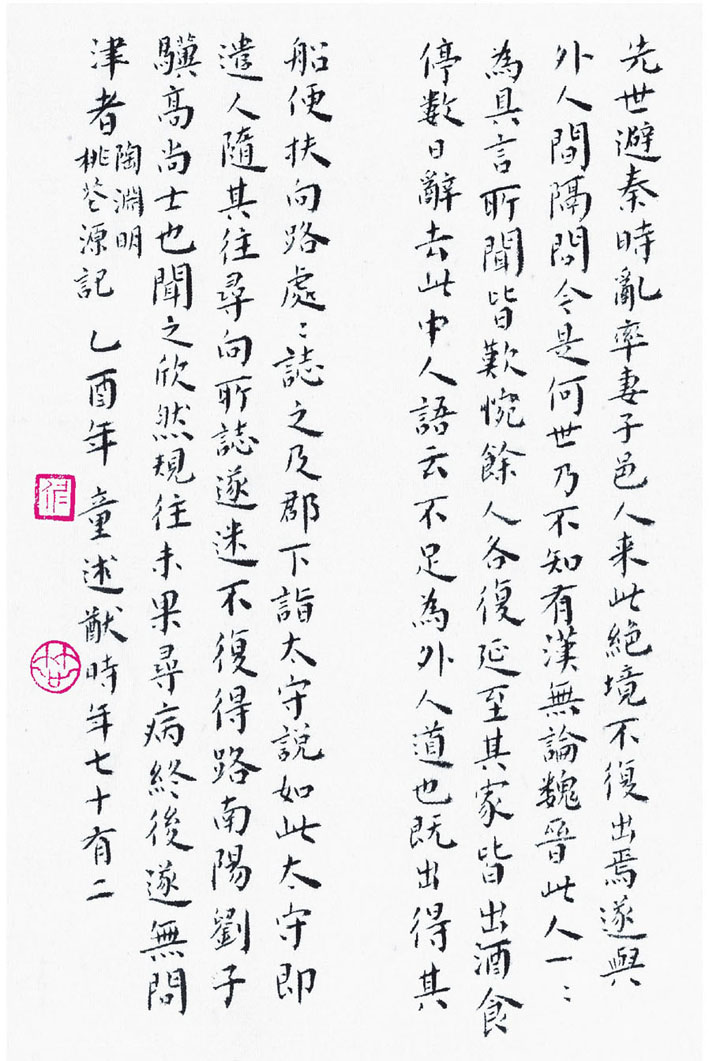 先世避秦時亂率妻子邑人来此絶境不復出焉遂與
外人間隔問今是何世乃不知有漢無論魏晉此人一〻
為具言所聞皆歎惋餘人各復延至其家皆出酒食
停數日辭去此中人語云不足為外人道也既出得其
船便扶向路處〻誌之及郡下詣太守説如此太守即
遣人隨其往尋向所誌遂迷不復得路南陽劉子
驥高尚士也聞之欣然規往未果尋病終後遂無問
津者
陶淵明
桃花源記
乙酉年 童述猷時年七十有二